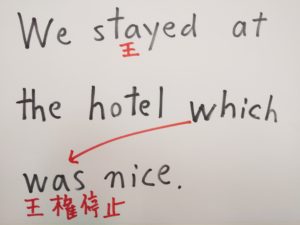 We stayed at
王
the hotel which
was nice.
王権停止